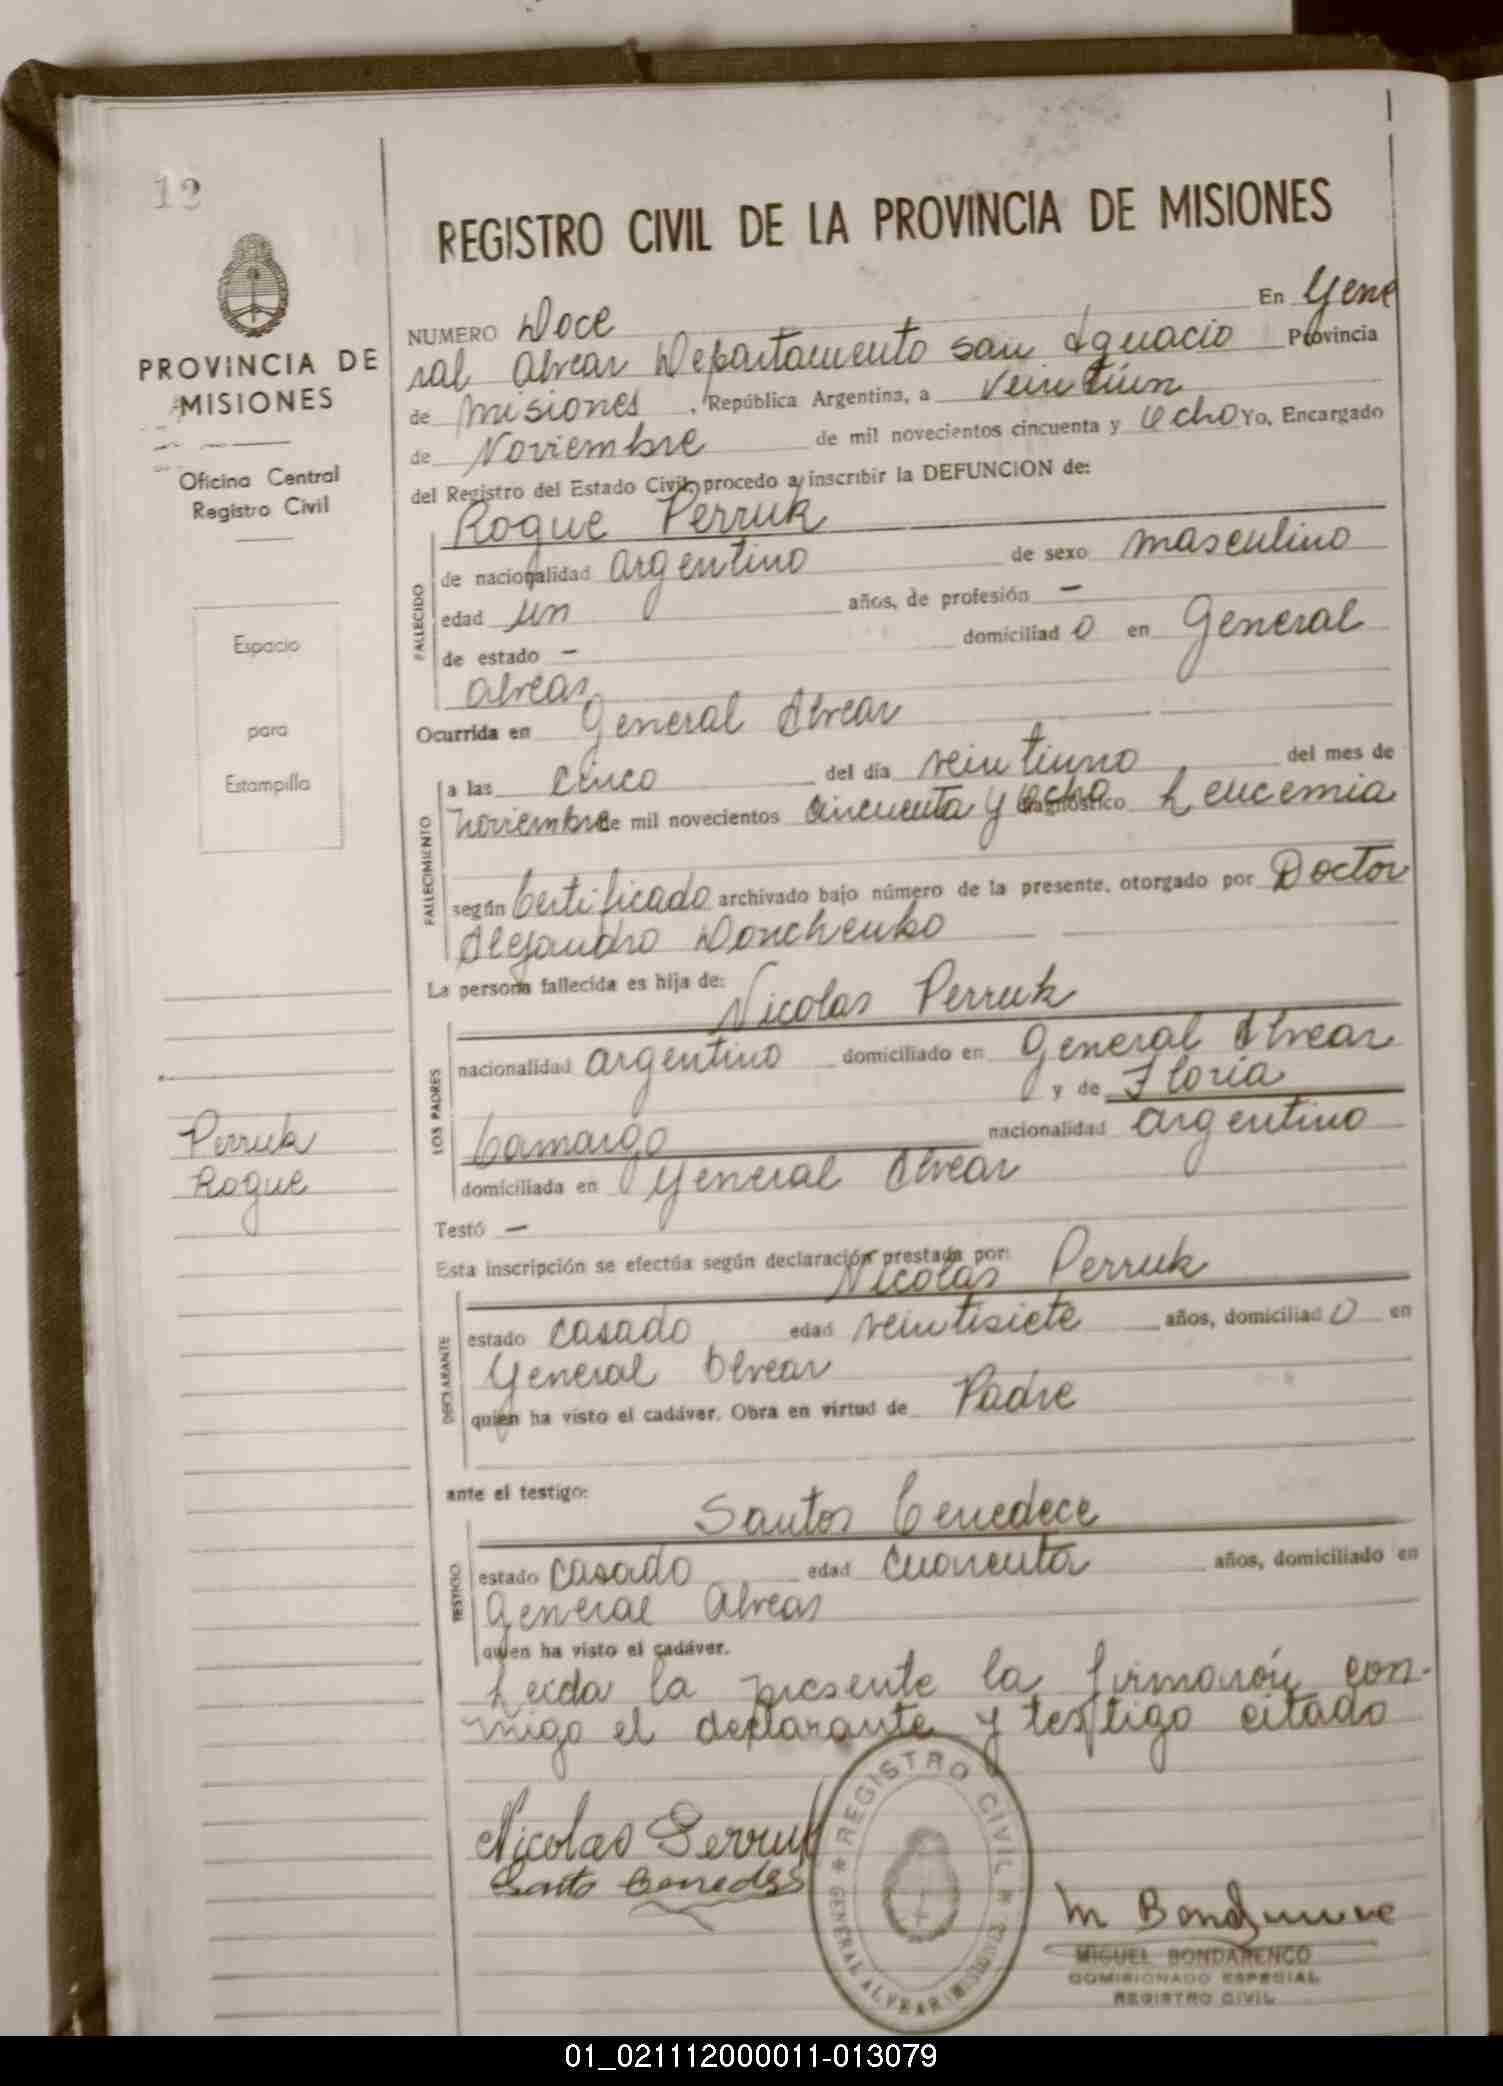 12
PROVINCIA DE
MISIONES
Oficina Central
Registro Civil
Espacio
para
Estampilla
Perruk
Roque
REGISTRO CIVIL DE LA PROVINCIA DE MISIONES
NUMERO Doce En Gene
ral Alvear Departamento San Ignacio Provincia
de Misiones, República Argentina, a veintiún
de Noviembre de mil novecientos cincuenta y ocho Yo, Encargado
del Registro del Estado Civil, procedo a inscribir la DEFUNCION de:
Roque Perruk
FALLECIDO
de nacionalidad argentino de sexo masculino
edad un años, de profesión —
de estado — domiciliado en General
Alvear
Ocurrida en General Alvear
FALLECIMIENTO
a las cinco del día veintiuno del mes de
noviembre de mil novecientos cincuenta y ocho diagnóstico Leucemia
según Certificado archivado bajo número de la presente, otorgado por Doctor
Alejandro Donchenko
La persona fallecida es hija de:
Nicolas Perruk
LOS PADRES
nacionalidad argentino domiciliado en General Alvear
y de Floria
Camargo nacionalidad argentino
domiciliada en General Alvear
Testó —
Esta inscripción se efectúa según declaración prestada por:
Nicolas Perruk
DECLARANTE
estado casado edad veintisiete años, domiciliado en
General Alvear
quien ha visto el cadáver. Obra en virtud de Padre
ante el testigo:
Santos Cenedece
TESTIGO
estado casado edad cuarenta años, domiciliado en
General Alvear
quien ha visto el cadáver.
Leida la presente la firmarón con-
migo el declarante y testigo citado
Nicolas Perruk
REGISTRO CIVIL
GENERAL ALVEAR (MISIONES)
MIGUEL BONDARENCO
COMISIONADO ESPECIAL
REGISTRO CIVIL
01_021112000011-013079